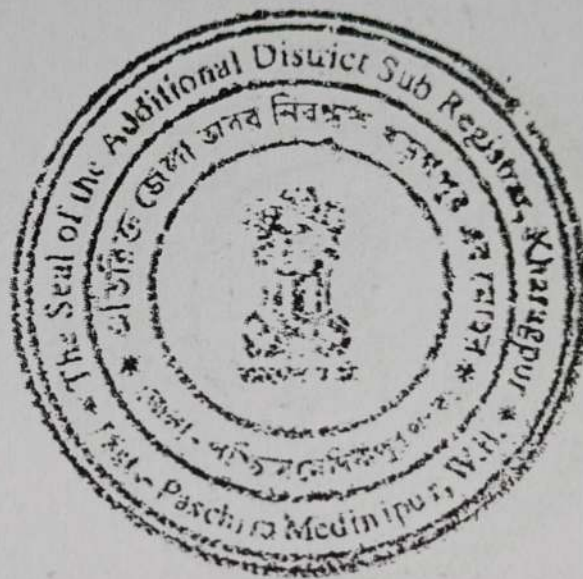 * The Seal of the Additional District Sub Registrar, Kharagpur *
Dist. - Paschim Medinipur, W.B.
* অতিরিক্ত জেলা অবর নিবন্ধক খড়গপুর এর মোহর *
জেলা - পশ্চিম মেদিনীপুর